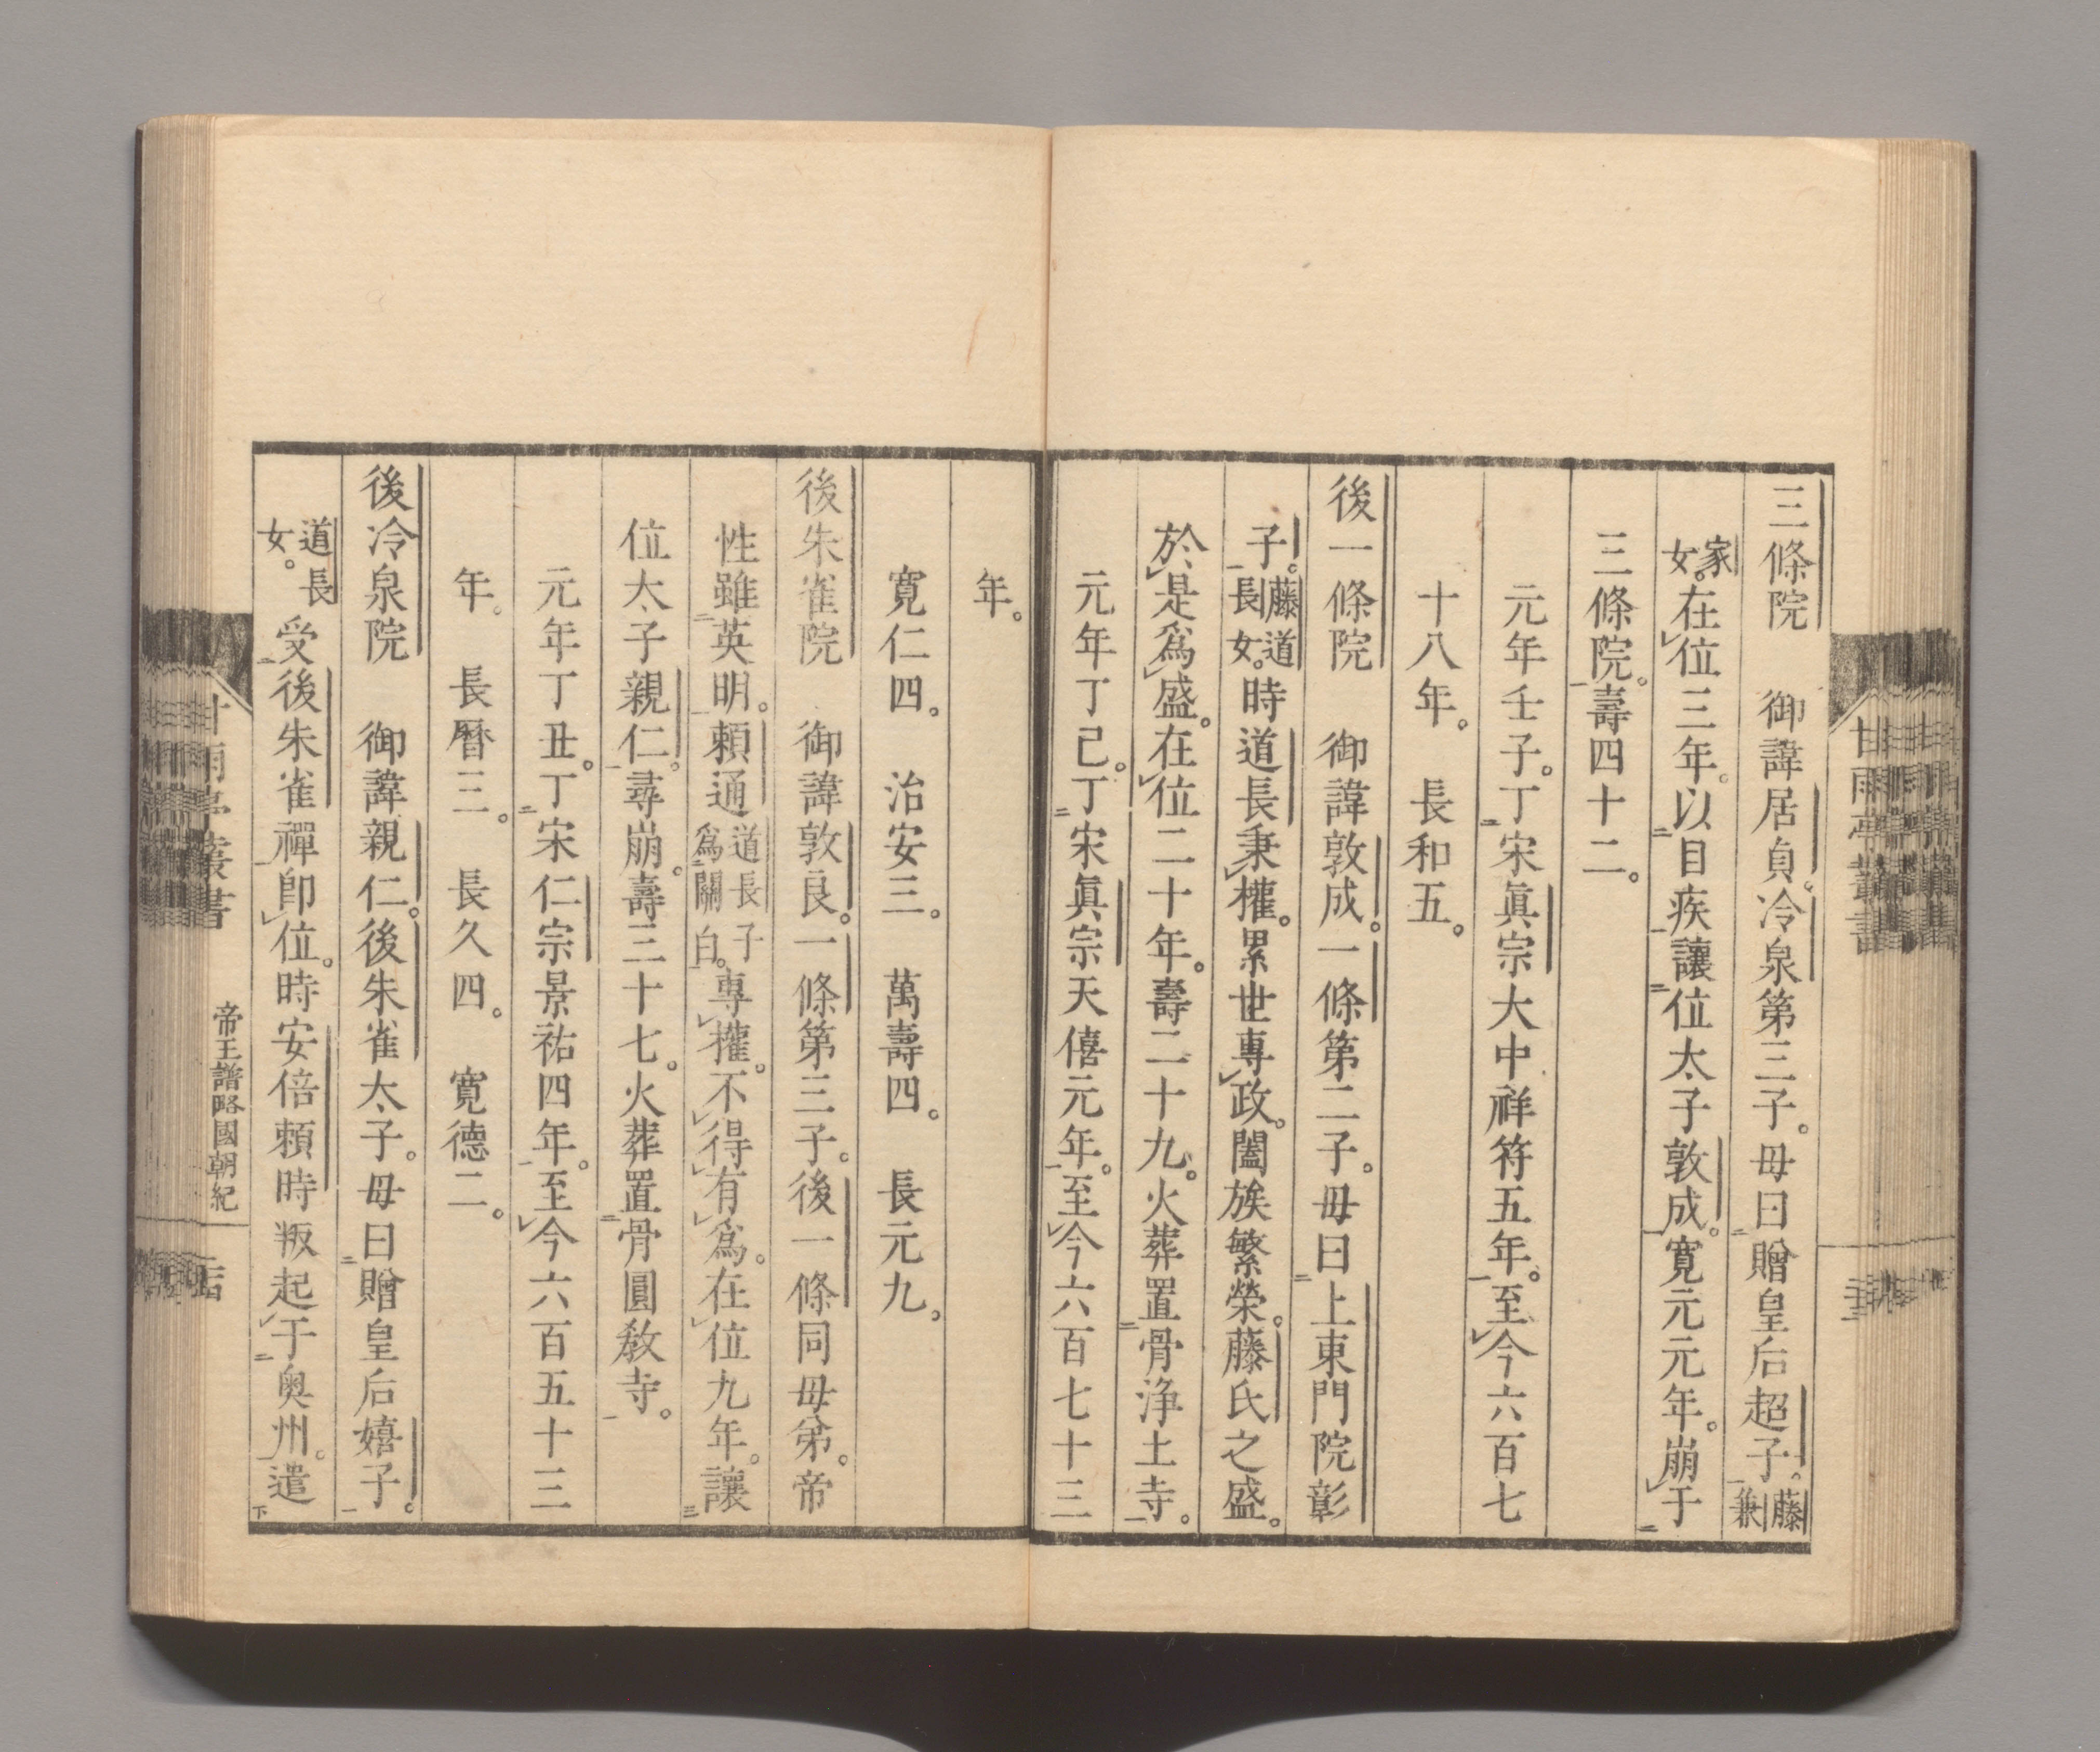 三條院　御諱居貞。冷泉第三子。母曰贈皇后超子。藤兼
家女。在位三年。以目疾讓位太子敦成。寬元元年。崩于
三條院。壽四十二。
元年壬子。丁宋眞宗大中祥符五年。至今六百七
十八年。　長和五。
後一條院　御諱敦成。一條第二子。母曰上東門院彰
子。藤道長女。時道長秉權。累世專政。闔族繁榮。藤氏之盛。
於是爲盛。在位二十年。壽二十九。火葬置骨淨土寺。
元年丁己。丁宋眞宗天僖元年。至今六百七十三
年。
寬仁四。　治安三。　萬壽四。　長元九。
後朱雀院　御諱敦良。一條第三子。後一條同母弟。帝
性雖英明。賴通道長子爲關白。專權。不得有爲。在位九年。讓
位太子親仁。尋崩。壽三十七。火葬置骨圓敎寺。
元年丁丑。丁宋仁宗景祐四年。至今六百五十三
年。　長曆三。　長久四。　寬德二。
後冷泉院　御諱親仁。後朱雀太子。母曰贈皇后嬉子。
道長女。受後朱雀禪卽位。時安倍賴時叛起于奧州。遣
甘雨亭叢書
帝王譜略國朝紀